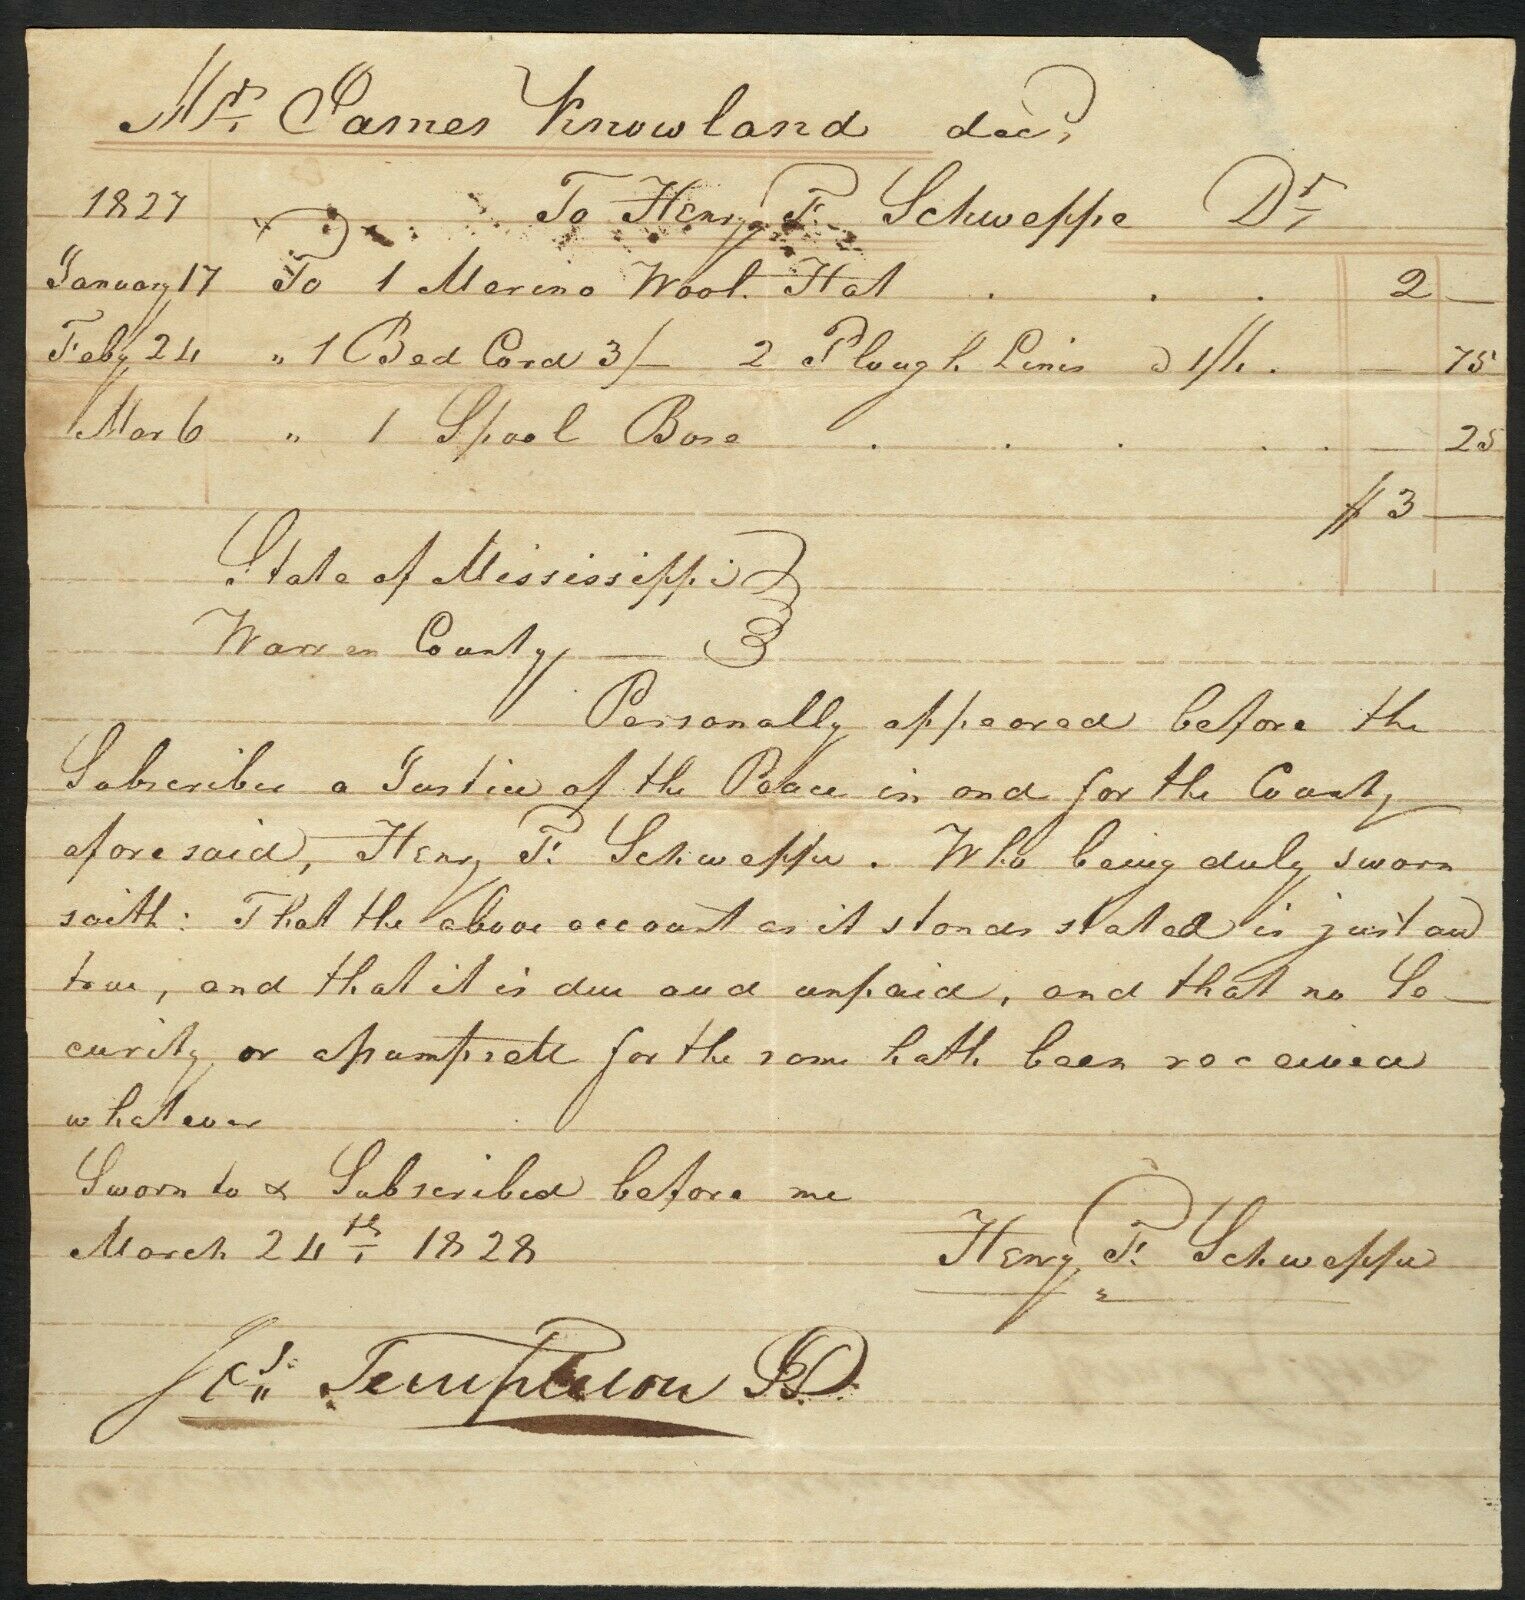 Mr. James Knowland dec.d
1827 To Henry F. Schweppe Dr.
January 17 To 1 Merino Wool. Hat . . . 2 —
Feby 24 " 1 Bed Cord 3/— 2 Plough Lines @ 1/6 . — 75
Mar 6 " 1 Spool Bose . . . . . — 25
$ 3 —
State of Mississippi }
Warren County — }
Personally appeared before the
Subscriber a Justice of the Peace in and for the County
aforesaid, Henry F. Schweppe. Who being duly sworn
saith: That the above account as it stands stated is just and
true, and that it is due and unpaid, and that no Se—
curity or for the same hath been received
whatever
Sworn to & Subscribed before me
March 24th. 1828 Henry F. Schweppe
Templeton JP.